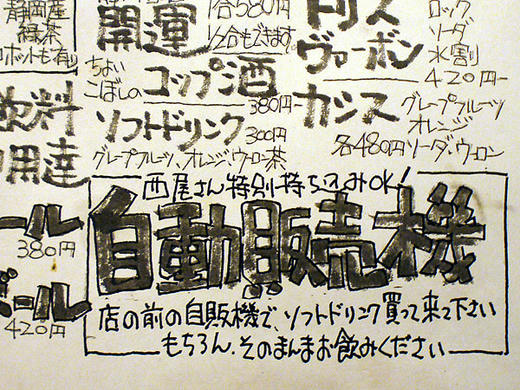 静岡産
緑茶
ポットも有り
開運
1合580円
1/2合もできます
ちょい
こぼしの
コップ酒
380円~
ソフトドリンク
300円
グレープフルーツ、オレンジ、ウーロン茶
トリス
ロック
ソーダ
水割
ヴァーボン
420円~
カシス
グレープフルーツ
オレンジ
各480円
ソーダ、ウーロン
飲料
用達
ール
380円
ボール
420円
西尾さん特別持ち込みOK!
自動販売機
店の前の自販機で、ソフトドリンク買って来て下さい
もちろん、そのまんまお飲みください